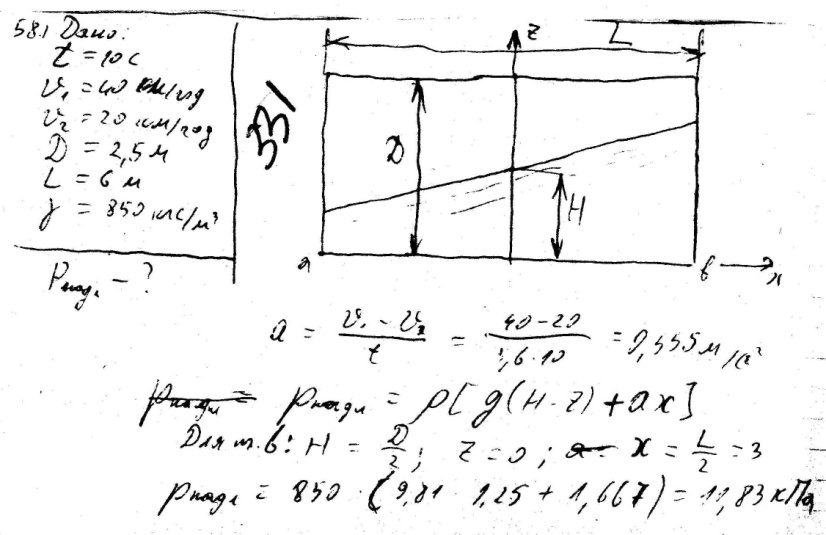 58.1 Дано:
t = 10 с
V₁ = 40 км/год
V₂ = 20 км/год
D = 2,5 м
L = 6 м
γ = 850 кгс/м³
Pнадл - ?
331
z
L
D
H
a
b
x
a = (V₁ - V₂)/t = (40-20)/(3,6·10) = 0,555 м/с²
pнадл = pнадл = ρ[g(H-z) + ax]
Для т. b: H = D/2; z = 0; a = x = L/2 = 3
pнадл = 850 · (9,81 · 1,25 + 1,667) = 11,83 кПа